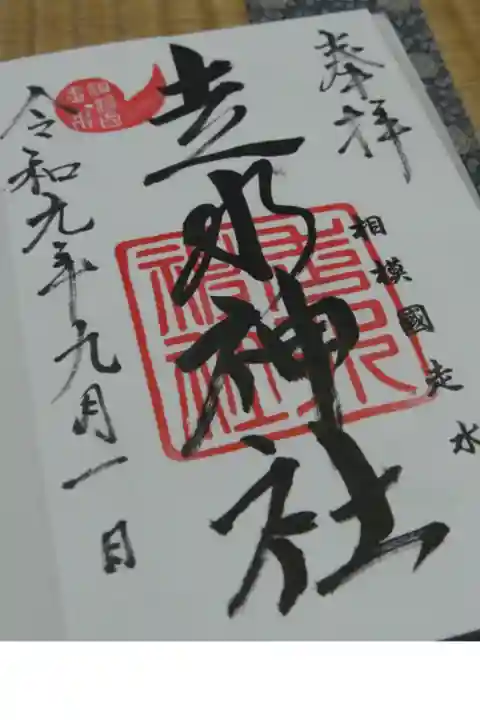 奉拝
相模國走水
走水神社
令和九年九月一日
走水神社